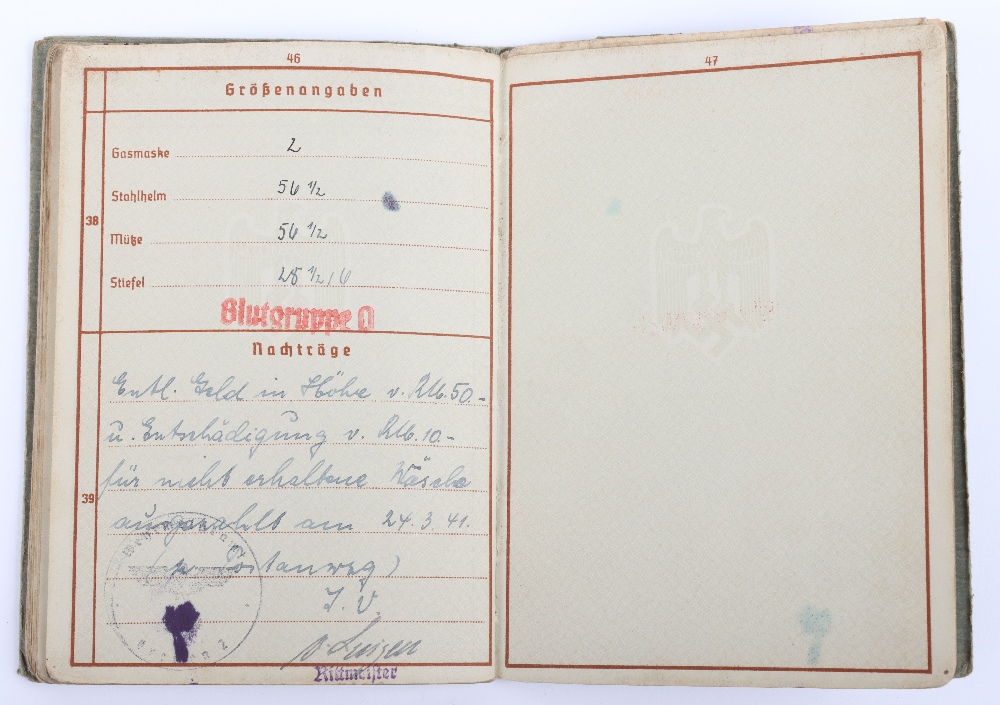 46
Größenangaben
Gasmaske 2
Stahlhelm 56 1/2
38
Mütze 56 1/2
Stiefel 28 1/2 / 6
Blutgruppe O
Nachträge
Entl. Geld in Höhe v. RM. 50.-
u. Entschädigung v. RM. 10.-
für nicht erhaltene Wäsche
39
ausgezahlt am 24.3.41.
(p. Postanweg)
I. V.
Rittmeister
2
47